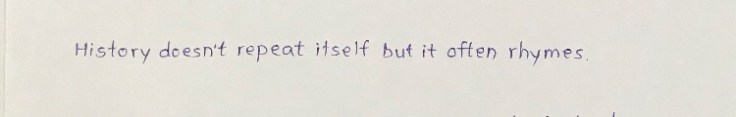 History doesn't repeat itself but it often rhymes.